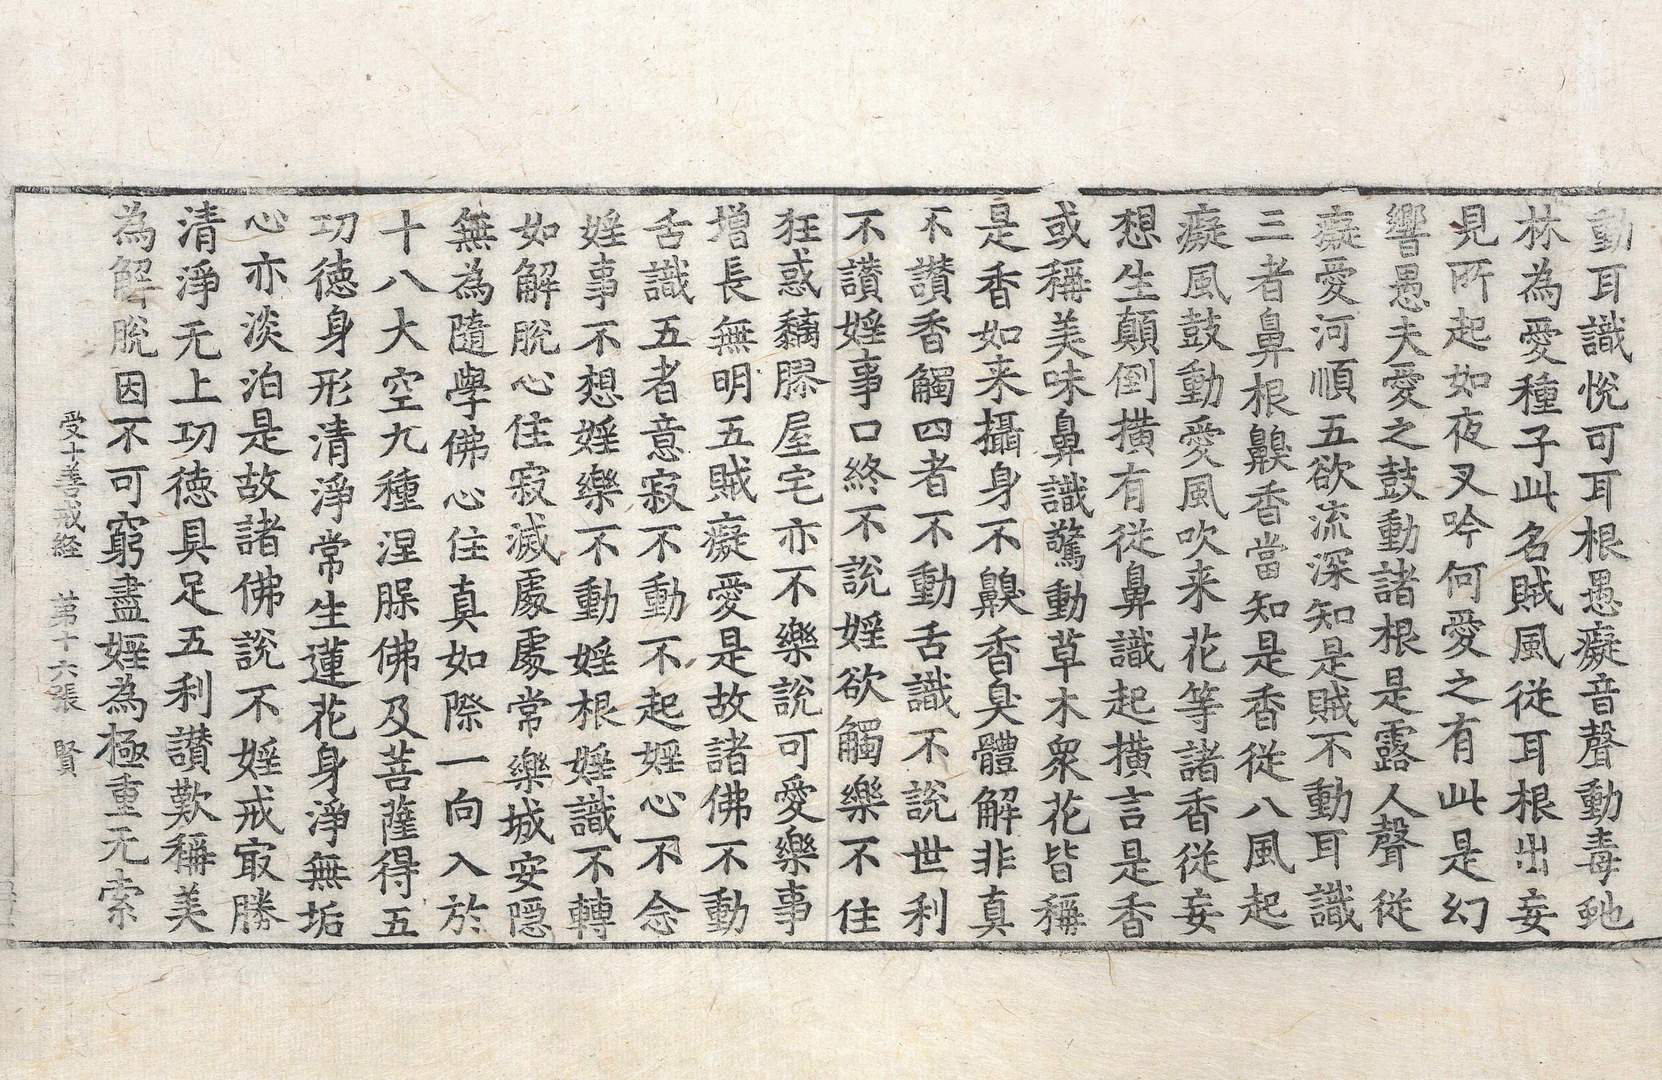 動耳識悅可耳根愚癡音聲動毒虵
林為愛種子此名賊風從耳根出妄
見所起如夜叉吟何愛之有此是幻
響愚夫愛之鼓動諸根是露人聲從
癡愛河順五欲流深知是賊不動耳識
三者鼻根齅香當知是香從八風起
癡風鼓動愛風吹来花等諸香從妄
想生顛倒撗有從鼻識起撗言是香
或稱美味鼻識驚動草木衆花皆稱
是香如来攝身不齅香臭體解非真
不讃香觸四者不動舌識不說世利
不讃婬事口終不說婬欲觸樂不住
狂惑黐膠屋宅亦不樂說可愛樂事
增長無明五賊癡愛是故諸佛不動
舌識五者意寂不動不起婬心不念
婬事不想婬樂不動婬根婬識不轉
如解脫心住寂滅處處常樂城安隱
無為隨學佛心住真如際一向入於
十八大空九種涅腂佛及菩薩得五
功徳身形清淨常生蓮花身淨無垢
心亦淡泊是故諸佛說不婬戒㝡勝
清淨无上功徳具足五利讃歎稱美
為解脫因不可窮盡婬為極重无索
受十善戒経　苐十六張　賢